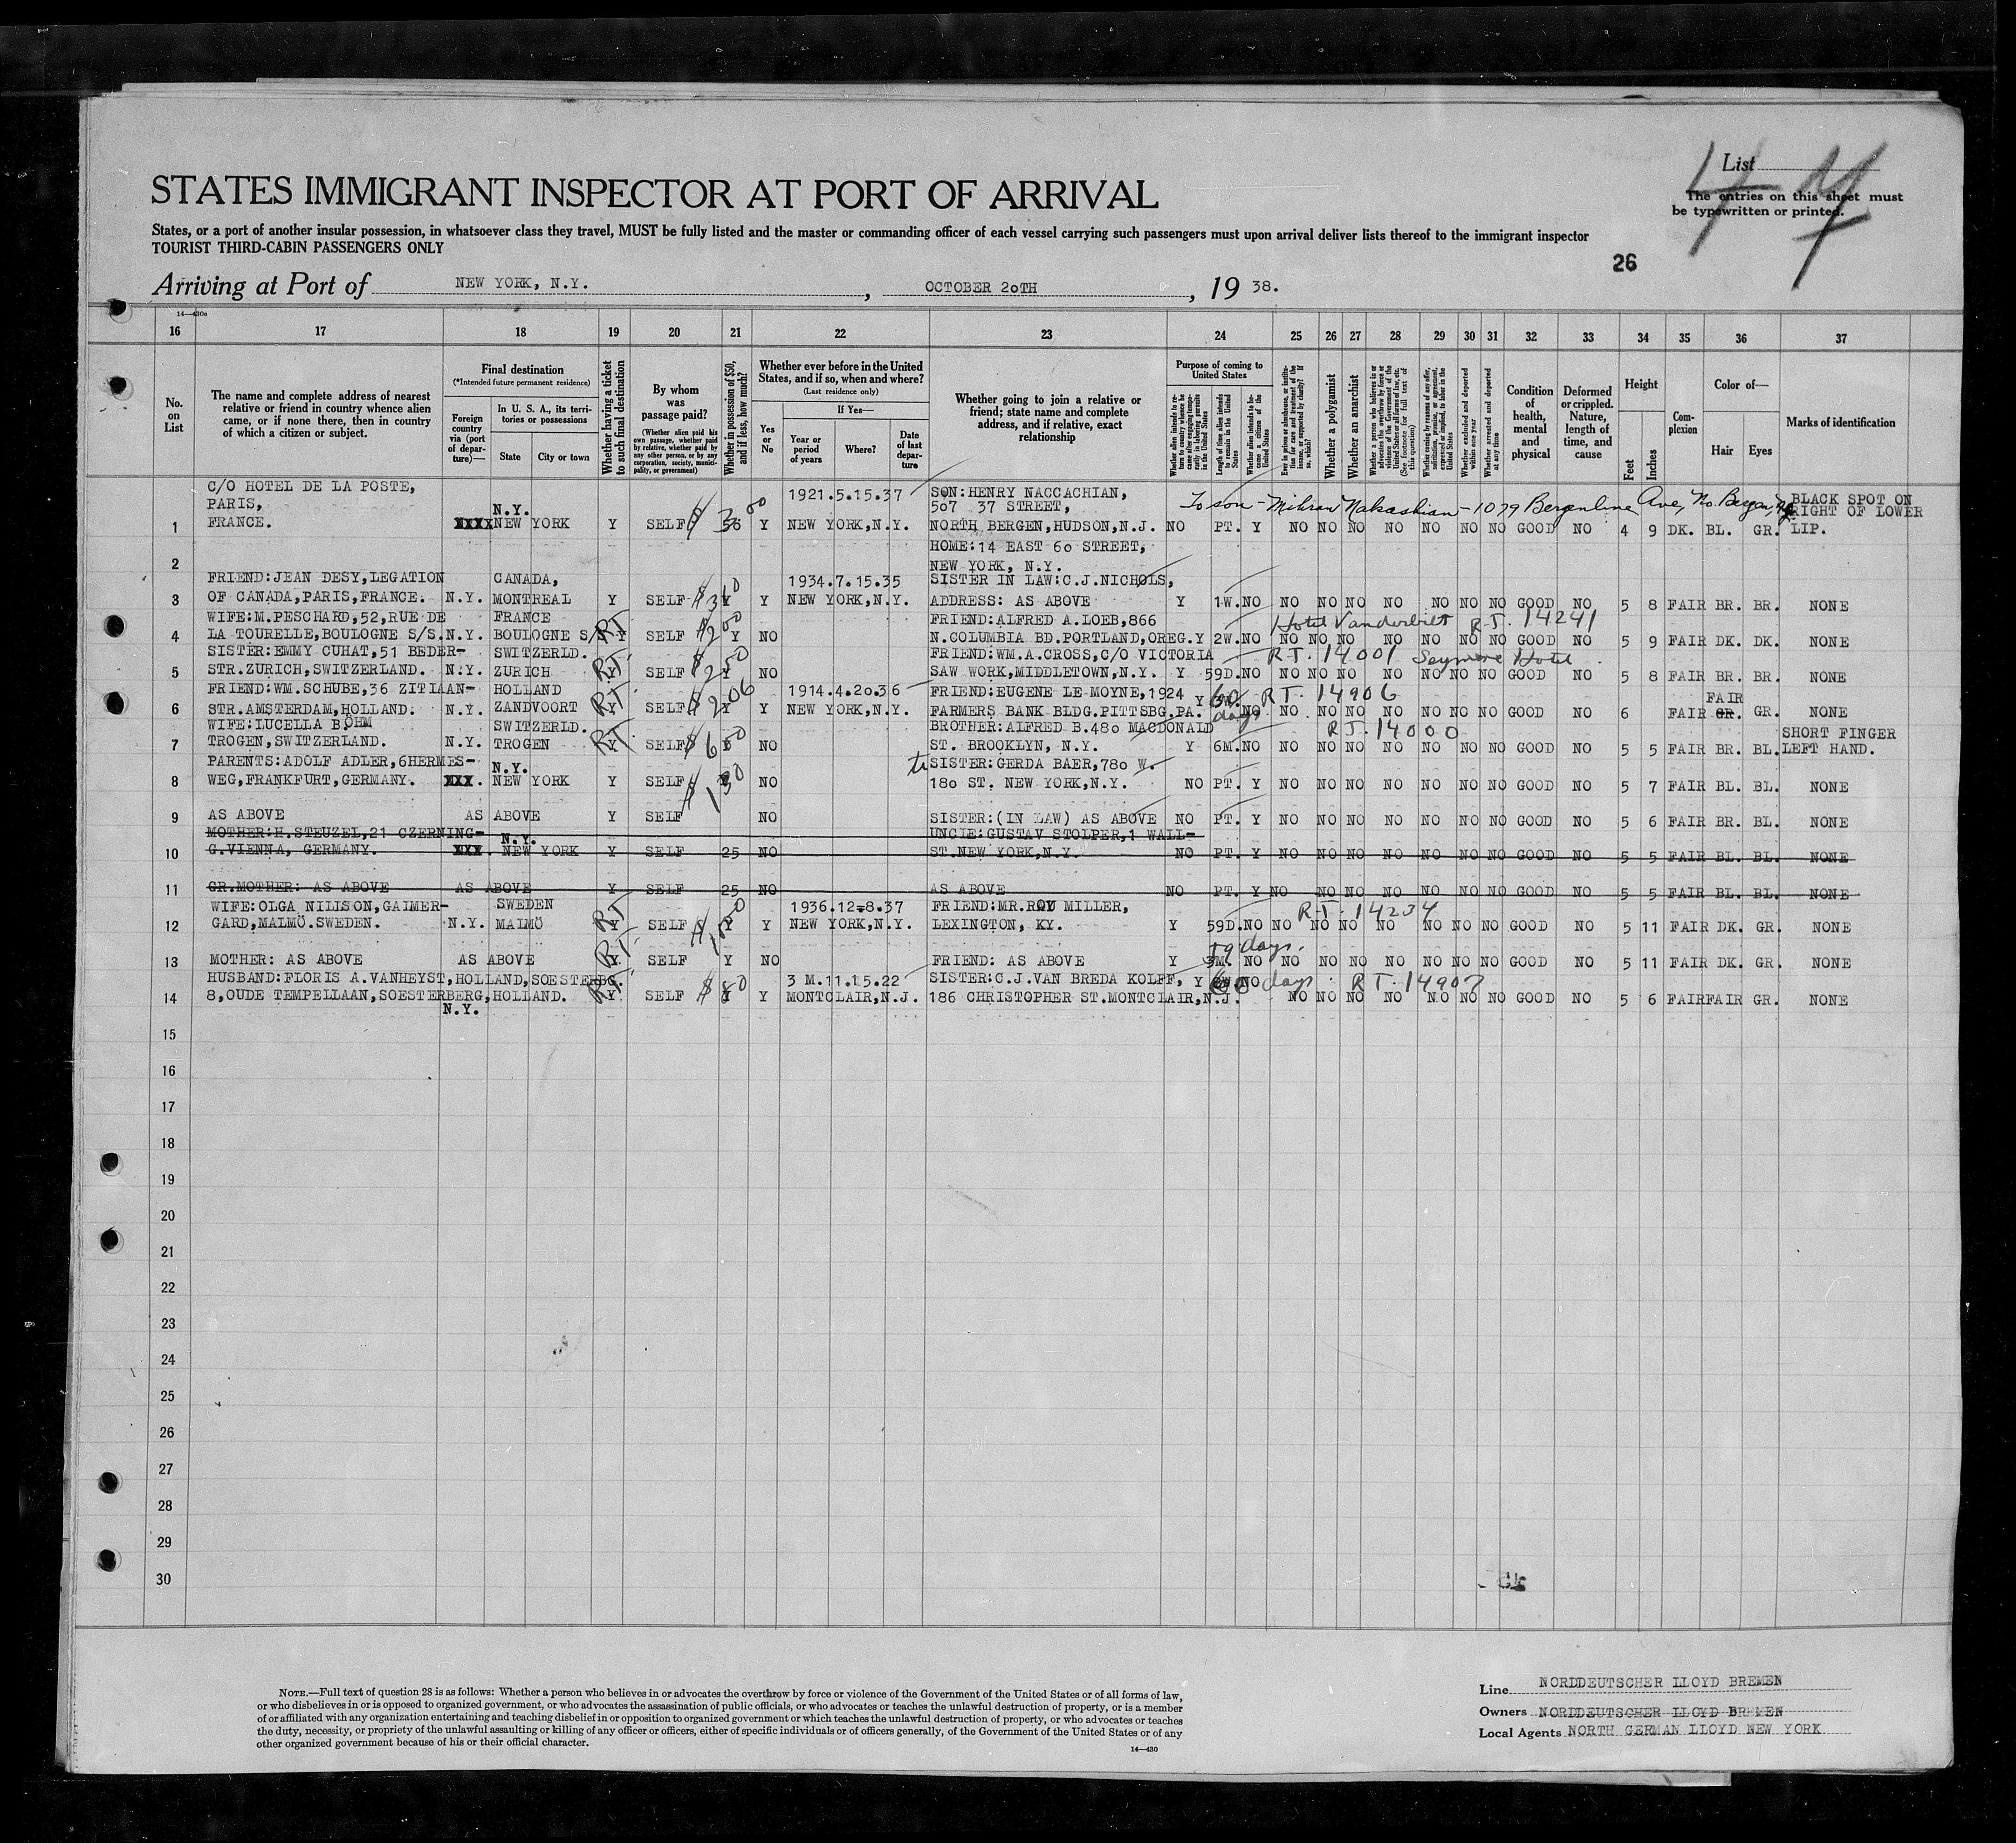 List
The entries on this sheet must
be typewritten or printed.
STATES IMMIGRANT INSPECTOR AT PORT OF ARRIVAL
States, or a port of another insular possession, in whatsoever class they travel, MUST be fully listed and the master or commanding officer of each vessel carrying such passengers must upon arrival deliver lists thereof to the immigrant inspector
TOURIST THIRD-CABIN PASSENGERS ONLY
26
Arriving at Port of NEW YORK, N.Y. , OCTOBER 20TH , 19 38.
16 17 18 19 20 21 22 23 24 25 26 27 28 29 30 31 32 33 34 35 36 37
No. on List
The name and complete address of nearest relative or friend in country whence alien came, or if none there, then in country of which a citizen or subject.
Final destination
(*Intended future permanent residence)
Foreign country via (port of departure)—
In U. S. A., its territories or possessions
State City or town
Whether having a ticket to such final destination
By whom was passage paid?
(Whether alien paid his own passage, whether paid by relative, whether paid by any other person, or by any corporation, society, municipality, or government)
Whether in possession of $50, and if less, how much?
Whether ever before in the United States, and if so, when and where?
(Last residence only)
Yes or No
If Yes—
Year or period of years Where? Date of last departure
Whether going to join a relative or friend; state name and complete address, and if relative, exact relationship
Purpose of coming to United States
Whether a polygamist
Whether an anarchist
Condition of health, mental and physical
Deformed or crippled. Nature, length of time, and cause
Height
Feet Inches
Complexion
Color of—
Hair Eyes
Marks of identification
C/O HOTEL DE LA POSTE, 1921.5.15.37 SON:HENRY NACCACHIAN, BLACK SPOT ON
PARIS, N.Y. 507 37 STREET, To son - Mihran Nakashian - 1079 Bergenline Ave, No. Bergen, NJ RIGHT OF LOWER
1 FRANCE. XXXX NEW YORK Y SELF Y NEW YORK,N.Y. NORTH BERGEN,HUDSON,N.J. NO PT. Y NO NO NO NO NO NO NO GOOD NO 4 9 DK. BL. GR. LIP.
HOME:14 EAST 60 STREET,
2 NEW YORK, N.Y.
FRIEND:JEAN DESY,LEGATION CANADA, 1934.7.15.35 SISTER IN LAW:C.J.NICHOLS,
3 OF CANADA,PARIS,FRANCE. N.Y. MONTREAL Y SELF Y Y NEW YORK,N.Y. ADDRESS: AS ABOVE Y 1W. NO NO NO NO NO NO NO NO GOOD NO 5 8 FAIR BR. BR. NONE
WIFE:M.PESCHARD,52,RUE DE FRANCE FRIEND:ALFRED A.LOEB,866 Hotel Vanderbilt R.T. 14241
4 LA TOURELLE,BOULOGNE S/S. N.Y. BOULOGNE S/S RT Y SELF $200 Y NO N.COLUMBIA BD.PORTLAND,OREG. Y 2W. NO NO NO NO NO NO NO NO GOOD NO 5 9 FAIR DK. DK. NONE
SISTER:EMMY CUHAT,51 BEDER- SWITZERLD. FRIEND:WM.A.CROSS,C/O VICTORIA R.T. 14001 Seymore Hotel
5 STR.ZURICH,SWITZERLAND. N.Y. ZURICH RT Y SELF $250 Y NO SAW WORK,MIDDLETOWN,N.Y. Y 59D. NO NO NO NO NO NO NO NO GOOD NO 5 8 FAIR BR. BR. NONE
FRIEND:WM.SCHUBE,36 ZITIAAN- HOLLAND 1914.4.20.36 FRIEND:EUGENE LE MOYNE,1924 60 R.T. 14906 FAIR
6 STR.AMSTERDAM,HOLLAND. N.Y. ZANDVOORT RT Y SELF Y Y NEW YORK,N.Y. FARMERS BANK BLDG.PITTSBG.PA. Y days NO NO NO NO NO NO NO NO GOOD NO 6 FAIR GR. GR. NONE
WIFE:LUCELLA BÖHM SWITZERLD. BROTHER:ALFRED B.480 MACDONALD R.T. 14000 SHORT FINGER
7 TROGEN,SWITZERLAND. N.Y. TROGEN RT Y SELF $600 NO ST. BROOKLYN, N.Y. Y 6M. NO NO NO NO NO NO NO NO GOOD NO 5 5 FAIR BR. BL. LEFT HAND.
PARENTS:ADOLF ADLER,6HERMES- N.Y. to SISTER:GERDA BAER,780 W.
8 WEG,FRANKFURT,GERMANY. XXX. NEW YORK Y SELF $130 NO 180 ST. NEW YORK,N.Y. NO PT. Y NO NO NO NO NO NO NO GOOD NO 5 7 FAIR BL. BL. NONE
9 AS ABOVE AS ABOVE Y SELF NO SISTER:(IN LAW) AS ABOVE NO PT. Y NO NO NO NO NO NO NO GOOD NO 5 6 FAIR BR. BL. NONE
MOTHER:H.STEUZEL,21 CZERNING- N.Y. UNCLE:GUSTAV STOLPER,1 WALL-
10 G.VIENNA, GERMANY. XXX. NEW YORK Y SELF 25 NO ST.NEW YORK,N.Y. NO PT. Y NO NO NO NO NO NO NO GOOD NO 5 5 FAIR BL. BL. NONE
11 GR.MOTHER: AS ABOVE AS ABOVE Y SELF 25 NO AS ABOVE NO PT. Y NO NO NO NO NO NO NO GOOD NO 5 5 FAIR BL. BL. NONE
WIFE:OLGA NILISON,GAIMER- SWEDEN 1936.12-8.37 FRIEND:MR.ROY MILLER, R.T. 14234
12 GARD,MALMÖ.SWEDEN. N.Y. MALMÖ RT Y SELF Y Y NEW YORK,N.Y. LEXINGTON, KY. Y 59D. NO NO NO NO NO NO NO NO GOOD NO 5 11 FAIR DK. GR. NONE
59 days.
13 MOTHER: AS ABOVE AS ABOVE RT Y SELF Y NO FRIEND: AS ABOVE Y 3M. NO NO NO NO NO NO NO NO GOOD NO 5 11 FAIR DK. GR. NONE
HUSBAND:FLORIS A.VANHEYST,HOLLAND,SOESTERBG. 3 M.11.15.22 SISTER:C.J.VAN BREDA KOLFF, Y 60 NO days R.T. 14907
14 8,OUDE TEMPELLAAN,SOESTERBERG,HOLLAND. RT Y SELF $80 Y Y MONTCLAIR,N.J. 186 CHRISTOPHER ST.MONTCLAIR,N.J. NO NO NO NO NO NO NO GOOD NO 5 6 FAIR FAIR GR. NONE
N.Y.
15
16
17
18
19
20
21
22
23
24
25
26
27
28
29
30
NOTE.—Full text of question 28 is as follows: Whether a person who believes in or advocates the overthrow by force or violence of the Government of the United States or of all forms of law,
or who disbelieves in or is opposed to organized government, or who advocates the assassination of public officials, or who advocates or teaches the unlawful destruction of property, or is a member
of or affiliated with any organization entertaining and teaching disbelief in or opposition to organized government or which teaches the unlawful destruction of property, or who advocates or teaches
the duty, necessity, or propriety of the unlawful assaulting or killing of any officer or officers, either of specific individuals or of officers generally, of the Government of the United States or of any
other organized government because of his or their official character.
14—430
Line NORDDEUTSCHER LLOYD BREMEN
Owners NORDDEUTSCHER LLOYD BREMEN
Local Agents NORTH GERMAN LLOYD NEW YORK